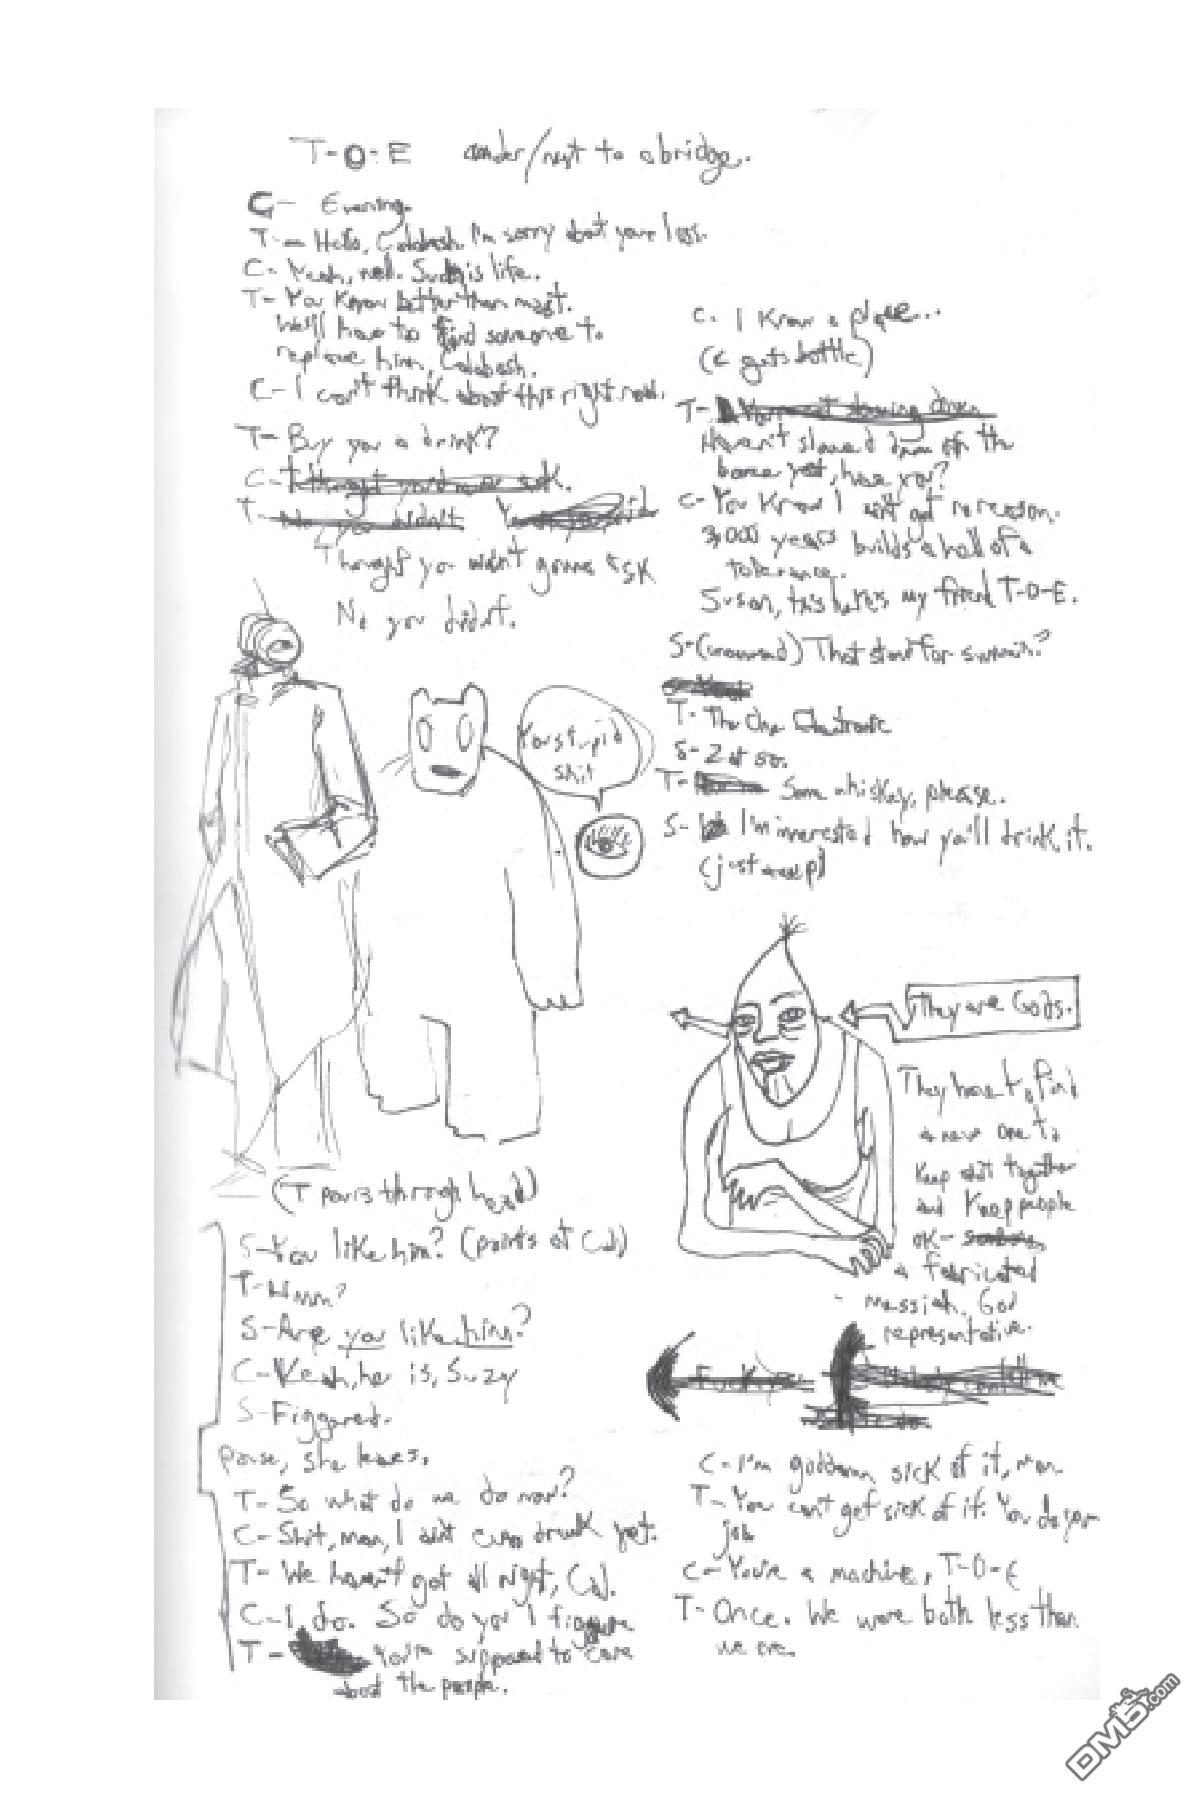 T-O-E under/next to a bridge.
C- Evening.
T- Hello, Calabash. I'm sorry about your loss.
C- Yeah, well. Such is life.
T- You know better than most.
We'll have to find someone to
replace him, Calabash.
C- I can't think about this right now.
T- Buy you a drink?
C- I thought you'd never ask.
T- No you didn't
Thought you wasn't gonna ask
No you didn't.
You stupid
shit
(T pours through head)
S- You like him? (points at Cal)
T- Hmm?
S- Are you like him?
C- Yeah, he is, Suzy
S- Figgered.
pause, she leaves.
T- So what do we do now?
C- Shit, man, I ain't even drunk yet.
T- We haven't got all night, Cal.
C- I do. So do you I figgure
T- You're supposed to care
about the people.
C- I know a place...
(C gets bottle)
T- You're not slowing down
Haven't slowed down on the
booze yet, have you?
C- You know I ain't got no reason.
3,000 years builds a hell of a
tolerance.
Susan, this here's my friend T-O-E.
S- (unamused) That stand for sumthin?
T- The One Electronic
S- Z at so.
T- Some whiskey, please.
S- I'm interested how you'll drink it.
They are Gods.
They have to find
a new one to
keep shit together
and keep people
ok-
a fabricated
messiah, God
representative.
C- I'm goddamn sick of it, man
T- You can't get sick of it. You do your
job
C- You're a machine, T-O-E
T- Once. We were both less than
we are.
DM5.com